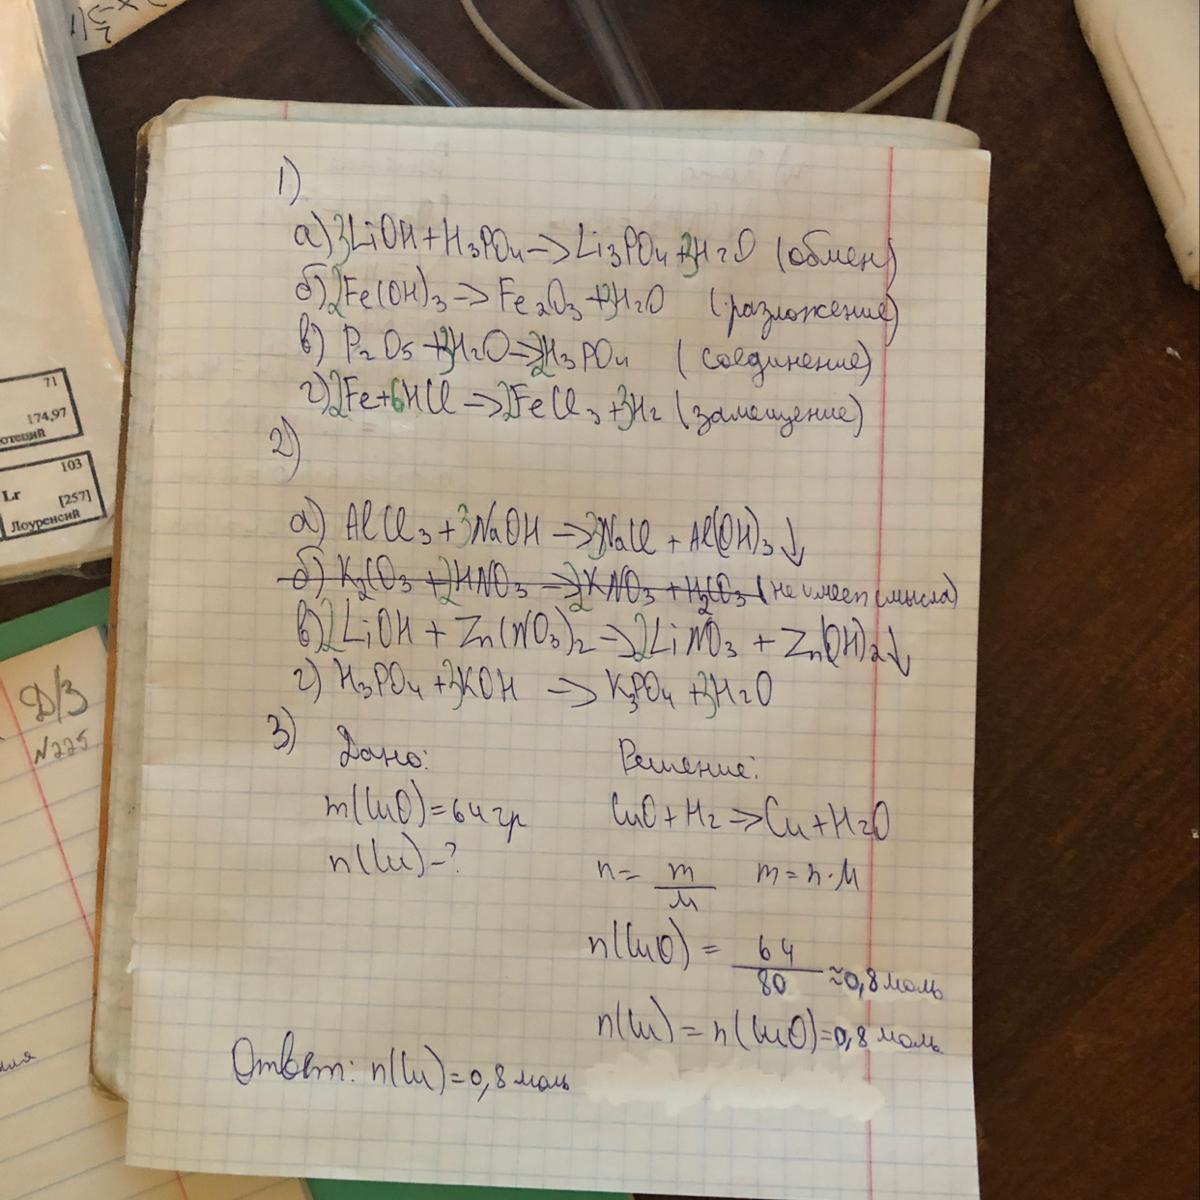 1)
а) 3LiOH + H3PO4 -> Li3PO4 + 3H2O (обмен)
б) 2Fe(OH)3 -> Fe2O3 + 3H2O (разложение)
в) P2O5 + 3H2O -> 2H3PO4 (соединение)
г) 2Fe + 6HCl -> 2FeCl3 + 3H2 (замещение)
2)
а) AlCl3 + 3NaOH -> 3NaCl + Al(OH)3↓
б) K2CO3 + 2HNO3 -> 2KNO3 + H2CO3 (не имеет смысла)
в) 2LiOH + Zn(NO3)2 -> 2LiNO3 + Zn(OH)2↓
г) H3PO4 + 3KOH -> K3PO4 + 3H2O
3) Дано: Решение:
m(CuO) = 64 гр CuO + H2 -> Cu + H2O
n(Cu) - ? n = m/M m = n · M
n(CuO) = 64/80 ≈ 0,8 моль
n(Cu) = n(CuO) = 0,8 моль
Ответ: n(Cu) = 0,8 моль
71
174,97
103
Lr [257]
Лоуренсий
Д/З
№225